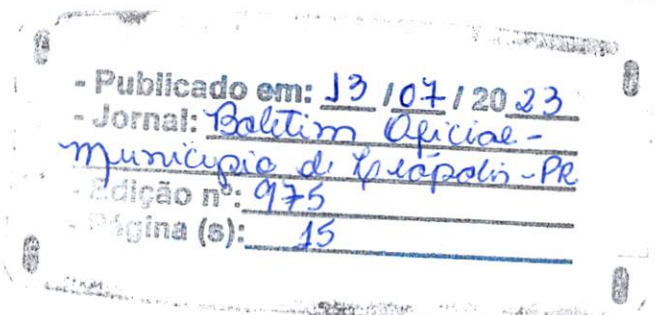 - Publicado em: 13 / 07 / 20 23
- Jornal: Boletim Oficial -
Município de Leópolis - PR
- Edição nº: 975
- Página (s): 15